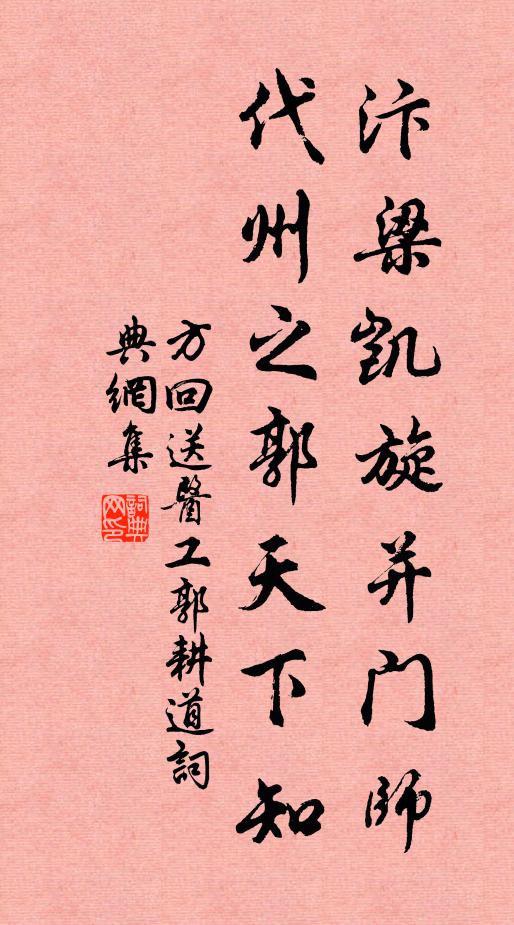 汴梁凱旋并门師
代州之郭天下知
方回送醫工郭耕道詞
典網集
詞典网印